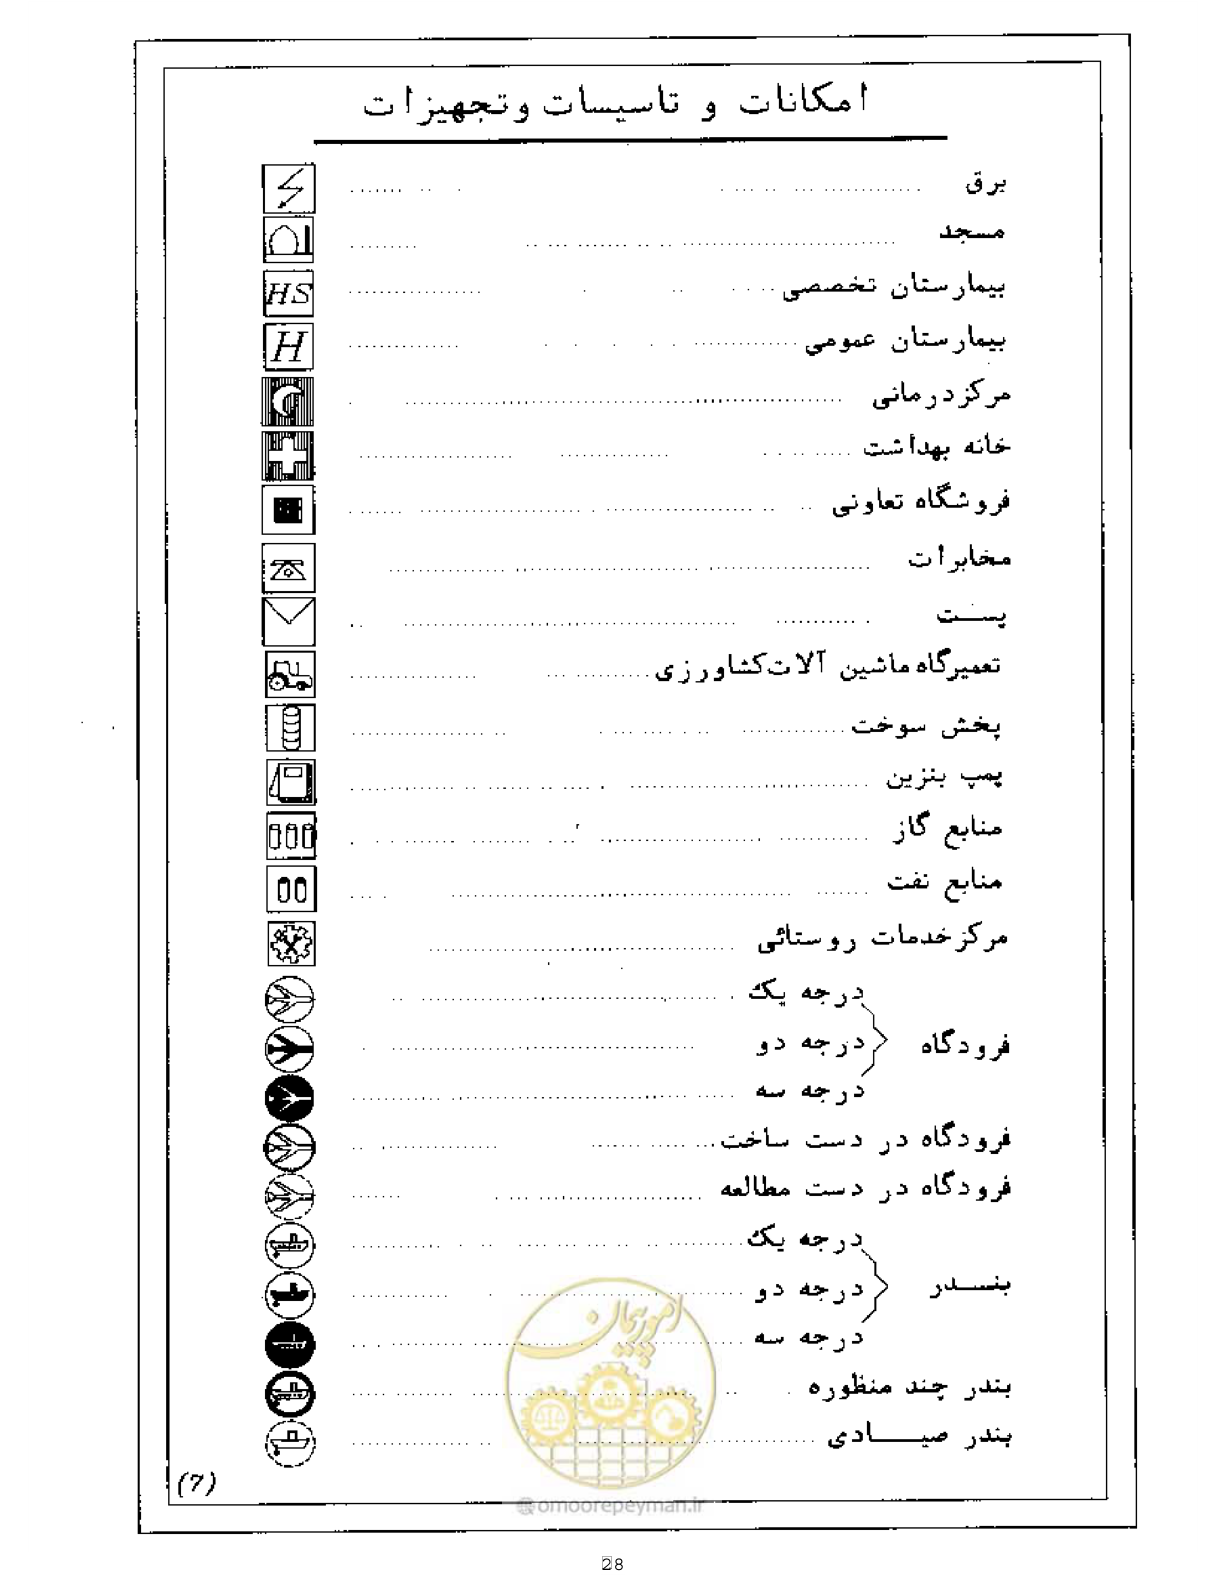 امکانات و تاسیسات و تجهیزات
برق
مسجد
بیمارستان تخصصی HS
بیمارستان عمومی H
مرکز درمانی
خانه بهداشت
فروشگاه تعاونی
مخابرات
پست
تعمیرگاه ماشین آلات کشاورزی
پخش سوخت
پمپ بنزین
منابع گاز
منابع نفت
مرکز خدمات روستائی
درجه یک
فرودگاه درجه دو
درجه سه
فرودگاه در دست ساخت
فرودگاه در دست مطالعه
درجه یک
بندر درجه دو
درجه سه
بندر چند منظوره
بندر صیادی
امور پیمان
(7)
@omoorepeyman.ir
28